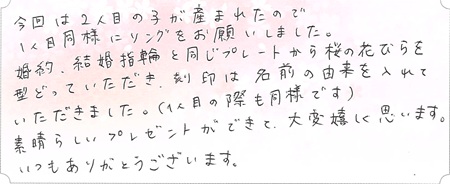 今回は2人目の子が産まれたので
1人目同様にリングをお願いしました。
婚約、結婚指輪と同じプレートから桜の花びらを
型どっていただき、刻印は名前の由来を入れて
いただきました。(1人目の際も同様です)
素晴らしいプレゼントができて、大変嬉しく思います。
いつもありがとうございます。